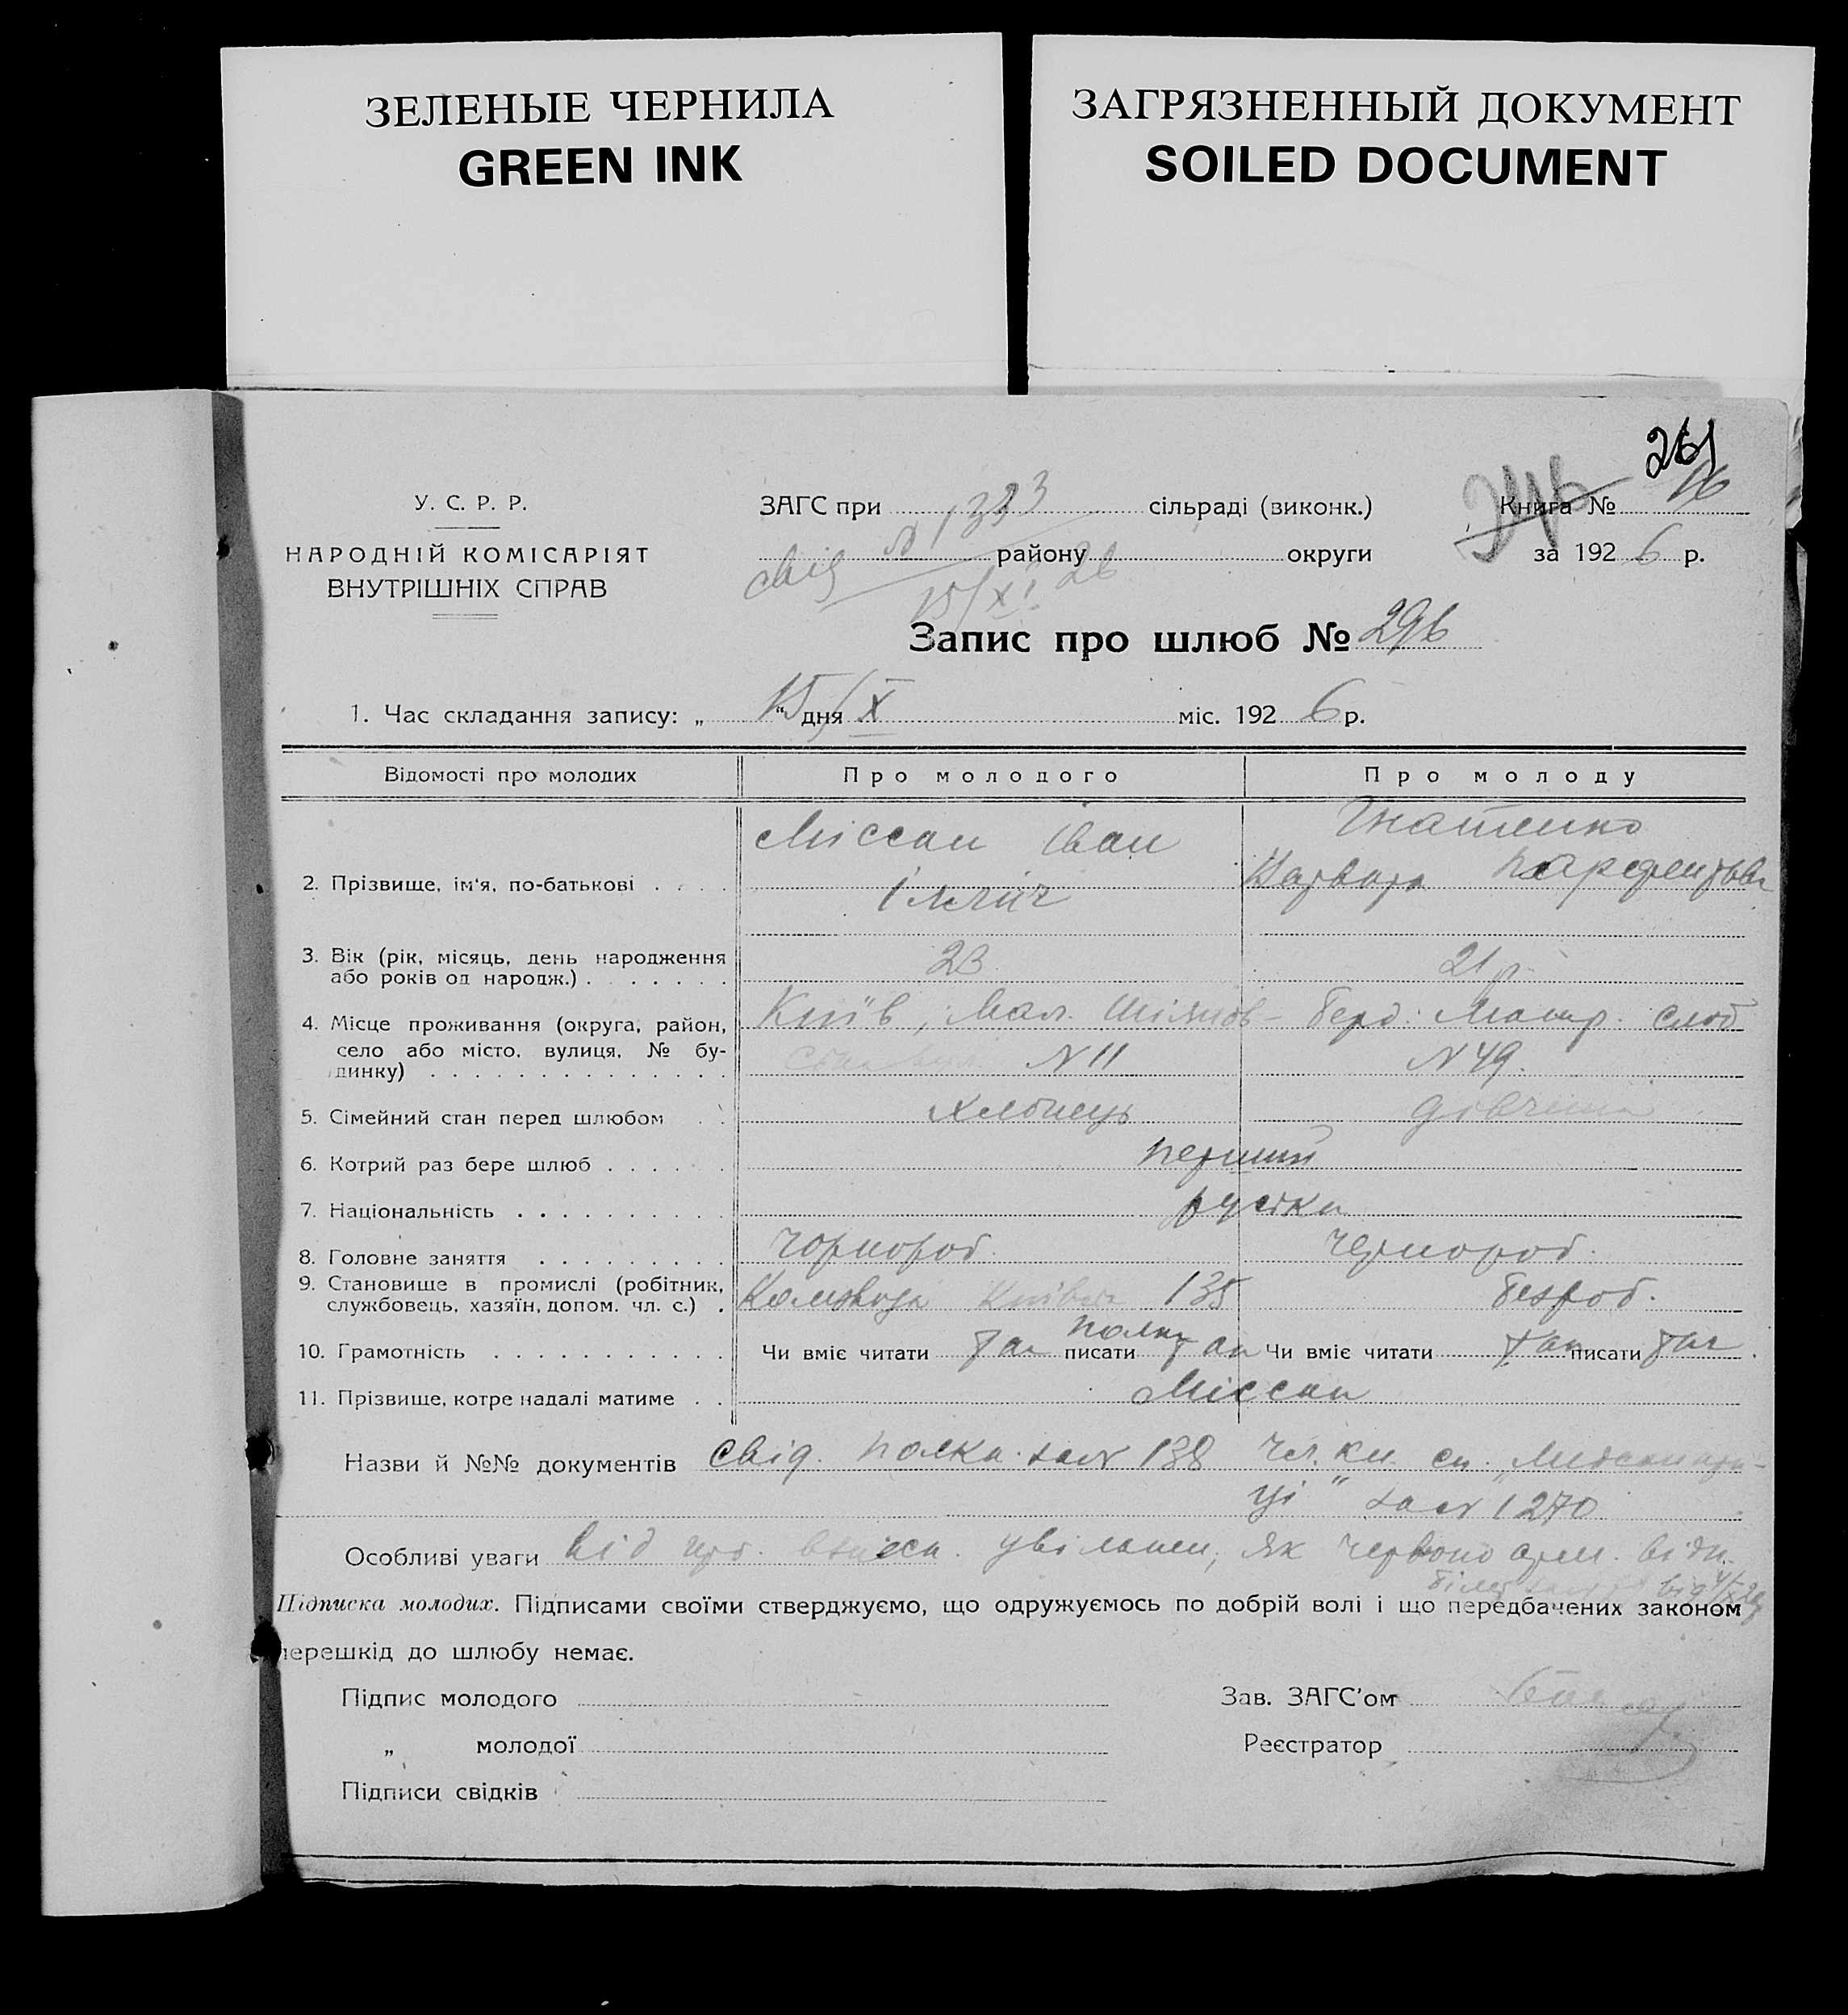 ЗЕЛЕНЫЕ ЧЕРНИЛА
GREEN INK
ЗАГРЯЗНЕННЫЙ ДОКУМЕНТ
SOILED DOCUMENT
261
У. С. Р. Р.
НАРОДНІЙ КОМІСАРІЯТ
ВНУТРІШНІХ СПРАВ
ЗАГС при № 1333 сільраді (виконк.)
свід району округи
15/XI 26
Книга № 16
за 1926 р.
Запис про шлюб № 296
1. Час складання запису: „ 15 “ дня X міс. 1926 р.
Відомості про молодих Про молодого Про молоду
2. Прізвище, ім'я, по-батькові . . . . Міссан Іван Ілліч Гнатенко Варвара
3. Вік (рік, місяць, день народження 23 21 р.
або років од народж.) . . . . . . .
4. Місце проживання (округа, район, Київ, Мал. слоб
село або місто, вулиця, № бу- N 11 N 49.
динку) . . . . . . . . . . . . . . .
5. Сімейний стан перед шлюбом . . хлопець дівчина
6. Котрий раз бере шлюб . . . . . . перший
7. Національність . . . . . . . . . . руська
8. Головне заняття . . . . . . . . . чорнороб. чернороб.
9. Становище в промислі (робітник, 135 безроб.
службовець, хазяїн, допом. чл. с.) . полку
10. Грамотність . . . . . . . . . . . Чи вміє читати так писати так Чи вміє читати так писати так
11. Прізвище, котре надалі матиме . . Міссан
Назви й №№ документів Свід. полка за N 138 Чл. кн. сп.
ці" за N 1270
Особливі уваги від увільнен, як червоно арм.
Підписка молодих. Підписами своїми стверджуємо, що одружуємось по добрій волі і що передбачених законом
перешкід до шлюбу немає.
Підпис молодого Зав. ЗАГС'ом
„ молодої Реєстратор
Підписи свідків